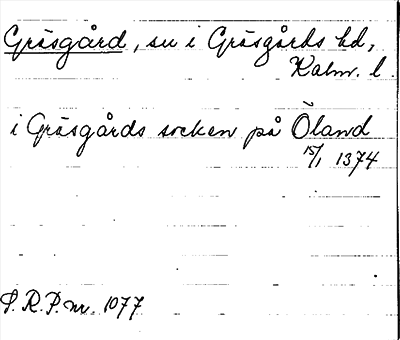 Gräsgård, sn i Gräsgårds hd,
Kalm. l.
i Gräsgårds socken på Öland
15/1 1374
S.R.P. nr. 1077